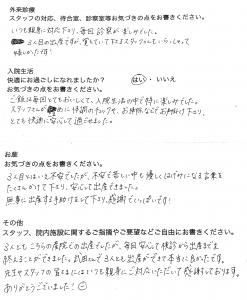 外来診療
スタッフの対応、待合室、診察室等お気づきの点をお書きください。
いつも親身に対応下さり、毎回診察が楽しみでした。
3人目の出産ですが、覚えていて下さるスタッフさんもいらっしゃって
嬉しかったです!
入院生活
快適にお過ごしになれましたか? はい・いいえ
お気づきの点をお書きください。
ご飯は毎回とてもおいしくて、入院生活の中で特に楽しみでした。
スタッフさんが 体調のチェックや、お声掛け下さり、
とても快適に安心して過ごせました。
お産
お気づきの点をお書きください。
3人目とはいえ不安でしたが、不安で苦しい中も優しくはげみになる言葉を
たくさんかけて下さり、安心して出産できました。
無事に出産する手助けをして下さり、感謝でいっぱいです!
その他
スタッフ、院内施設に関するご指摘やご要望などご自由にお書きください。
3人ともこちらの産院での出産でしたが、毎回安心して検診から出産まで
終えることができました。 3人とも出産ができて本当に良かったです。
先生やスタッフの皆さまにはいつも親身にご対応いただいて感謝しております。
ありがとうございました!